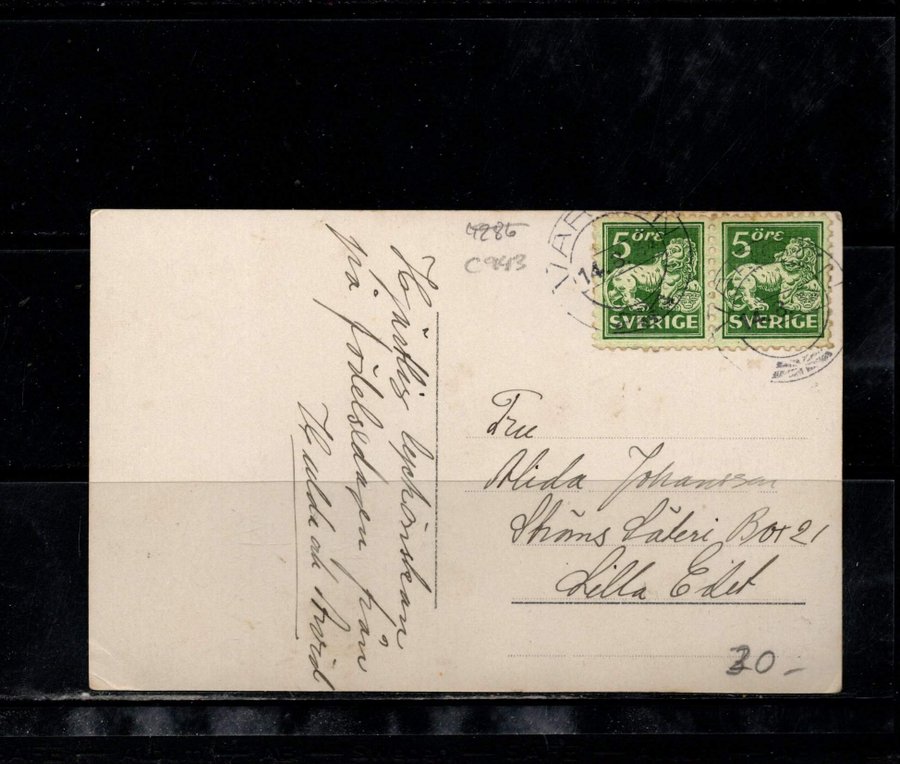 Hjärtlig lyckönskan
på födelsedagen från
Hulda och Arvid
4286
C943
14
5 öre
SVERIGE
5 öre
SVERIGE
Fru
Alida Johansson
Ströms Säteri Box 21
Lilla Edet
30-